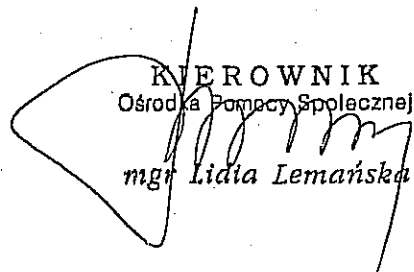 KIEROWNIK
Ośrodka Pomocy Społecznej
mgr Lidia Lemańska